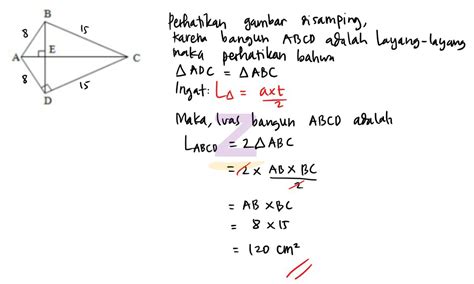 B
8
15
A
E
C
8
15
D
Perhatikan gambar disamping,
karena bangun ABCD adalah layang-layang
maka perhatikan bahwa
△ ADC = △ ABC
Ingat: L△ = axt/2
Maka, luas bangun ABCD adalah
L ABCD = 2 △ ABC
= 2 x AB x BC / 2
= AB x BC
= 8 x 15
= 120 cm²